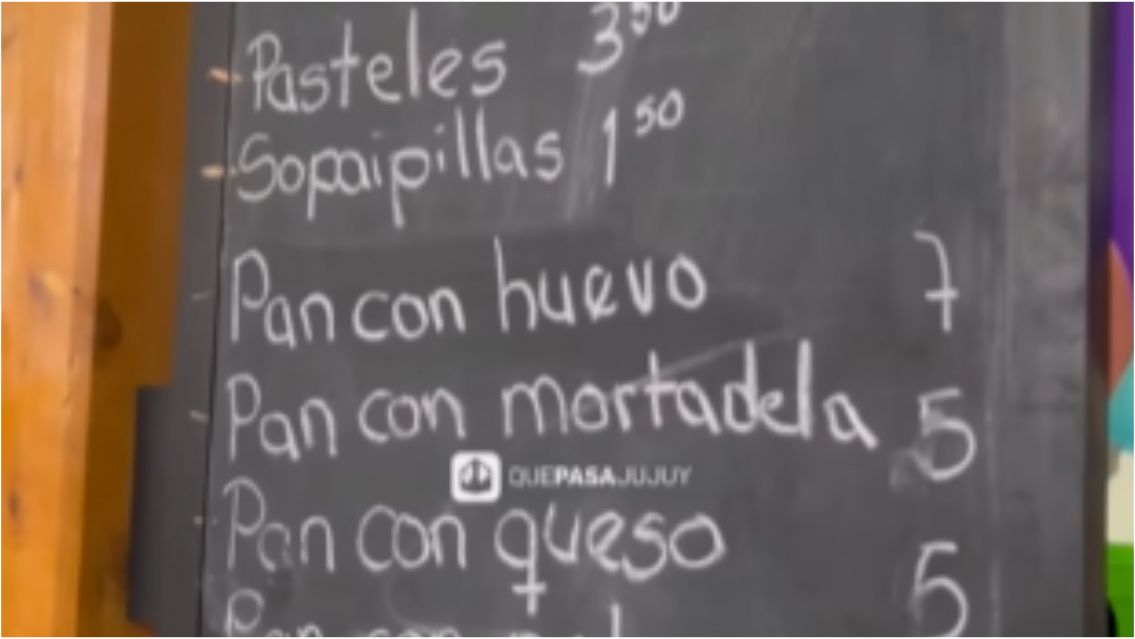 Pasteles 3⁵⁰
Sopaipillas 1⁵⁰
Pan con huevo 7
Pan con mortadela 5
QUEPASAJUJUY
Pan con queso 5
Pan con